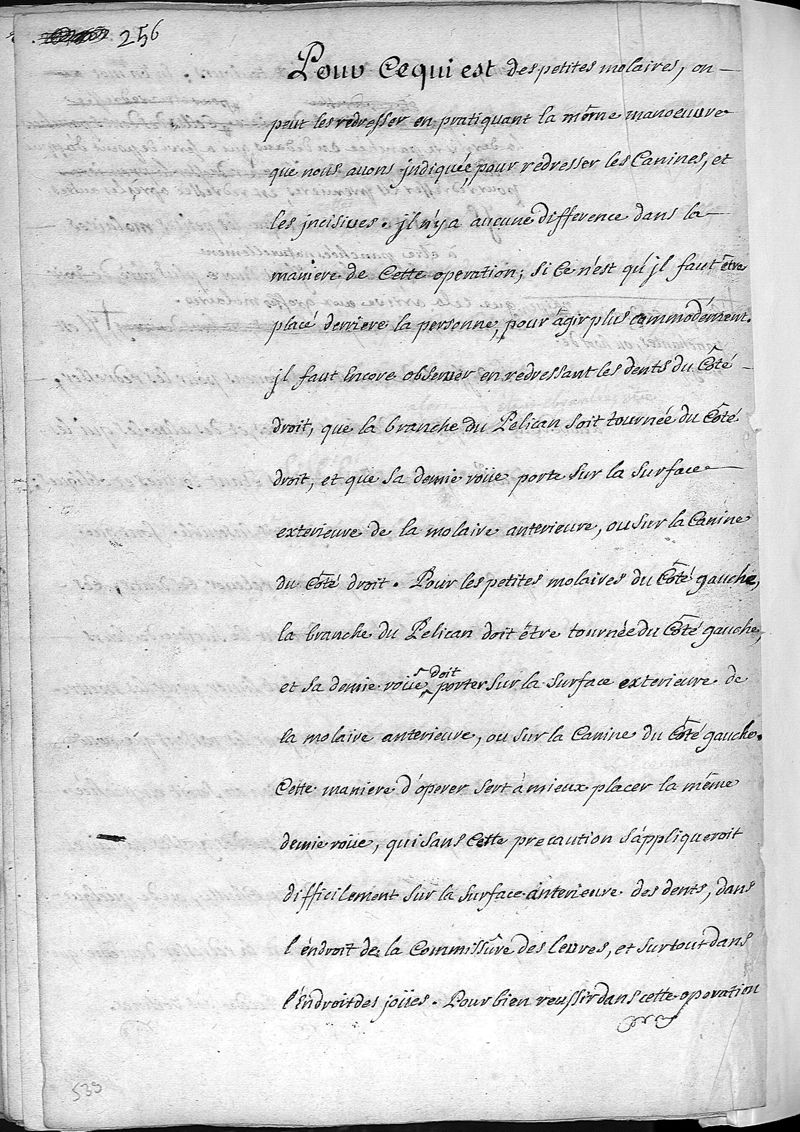 256
Pour Ce qui est des petites molaires, on
peut les redresser en pratiquant la même manoeuvre
que nous avons jndiquée, pour redresser les Canines, et
les jncisives. jl n'y a aucune difference dans la
maniere de Cette operation; si Ce n'est qu'jl faut être
placé derriere la personne, pour agir plus commodément.
jl faut Encore observer en redressant les dents du Côté
droit, que la branche du Pelican soit tournée du Côté
droit, et que sa demie roüe porte sur la surface
exterieure de la molaire anterieure, ou sur la Canine
du Côté droit. Pour les petites molaires du Côté gauche,
la branche du Pelican doit être tournée du Côté gauche,
et sa demie roüe doit porter sur la surface exterieure de
la molaire anterieure, ou sur la Canine du Côté gauche.
Cette maniere d'operer sert à mieux placer la même
demie roüe, qui sans Cette precaution s'appliqueroit
difficilement sur la surface anterieure des dents, dans
l'éndroit de la Commissûre des levres, et surtout dans
l'éndroit des joües. Pour bien reussir dans cette operation
539